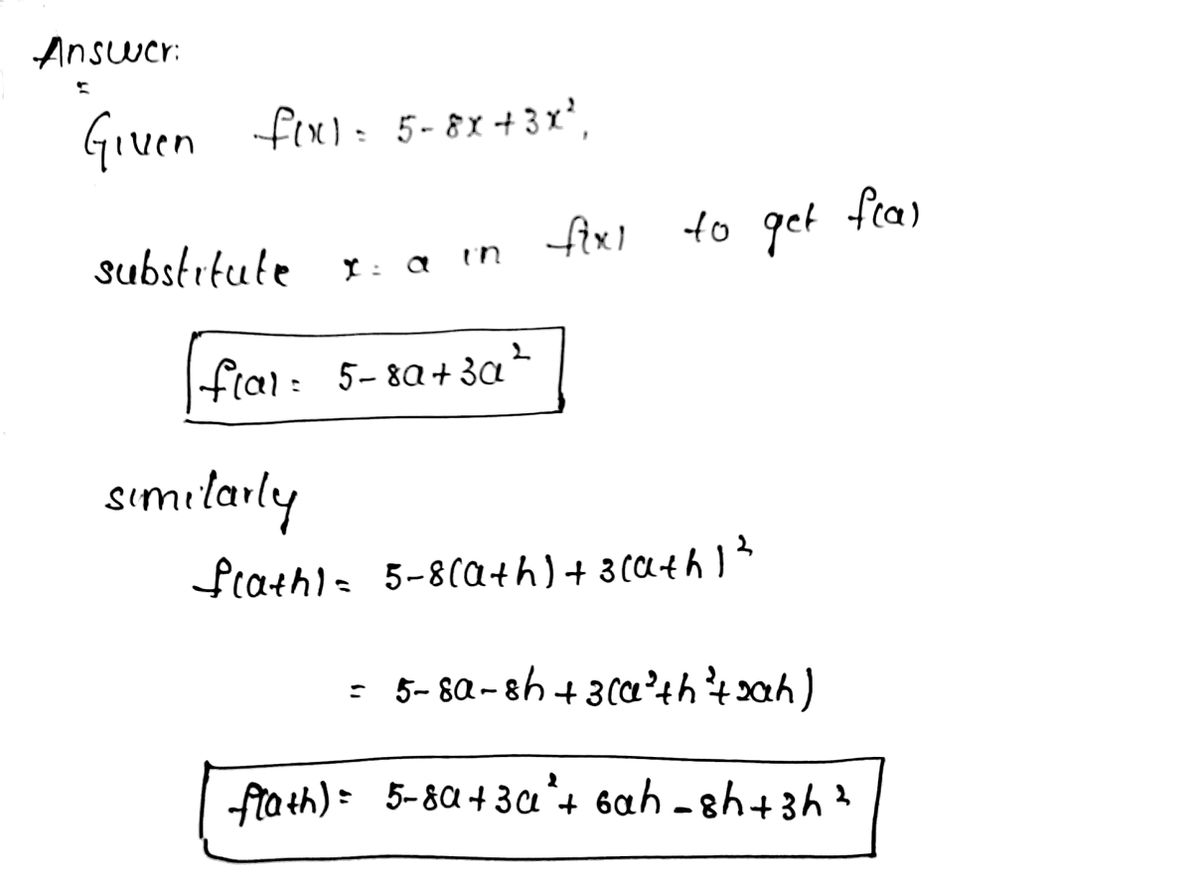 Answer:
=
Given f(x) = 5 - 8x + 3x²,
substitute x = a in f(x) to get f(a)
f(a) = 5 - 8a + 3a²
similarly
f(a+h) = 5-8(a+h) + 3(a+h)²
= 5-8a-8h + 3(a²+h²+2ah)
f(a+h) = 5-8a+3a²+ 6ah - 8h + 3h²